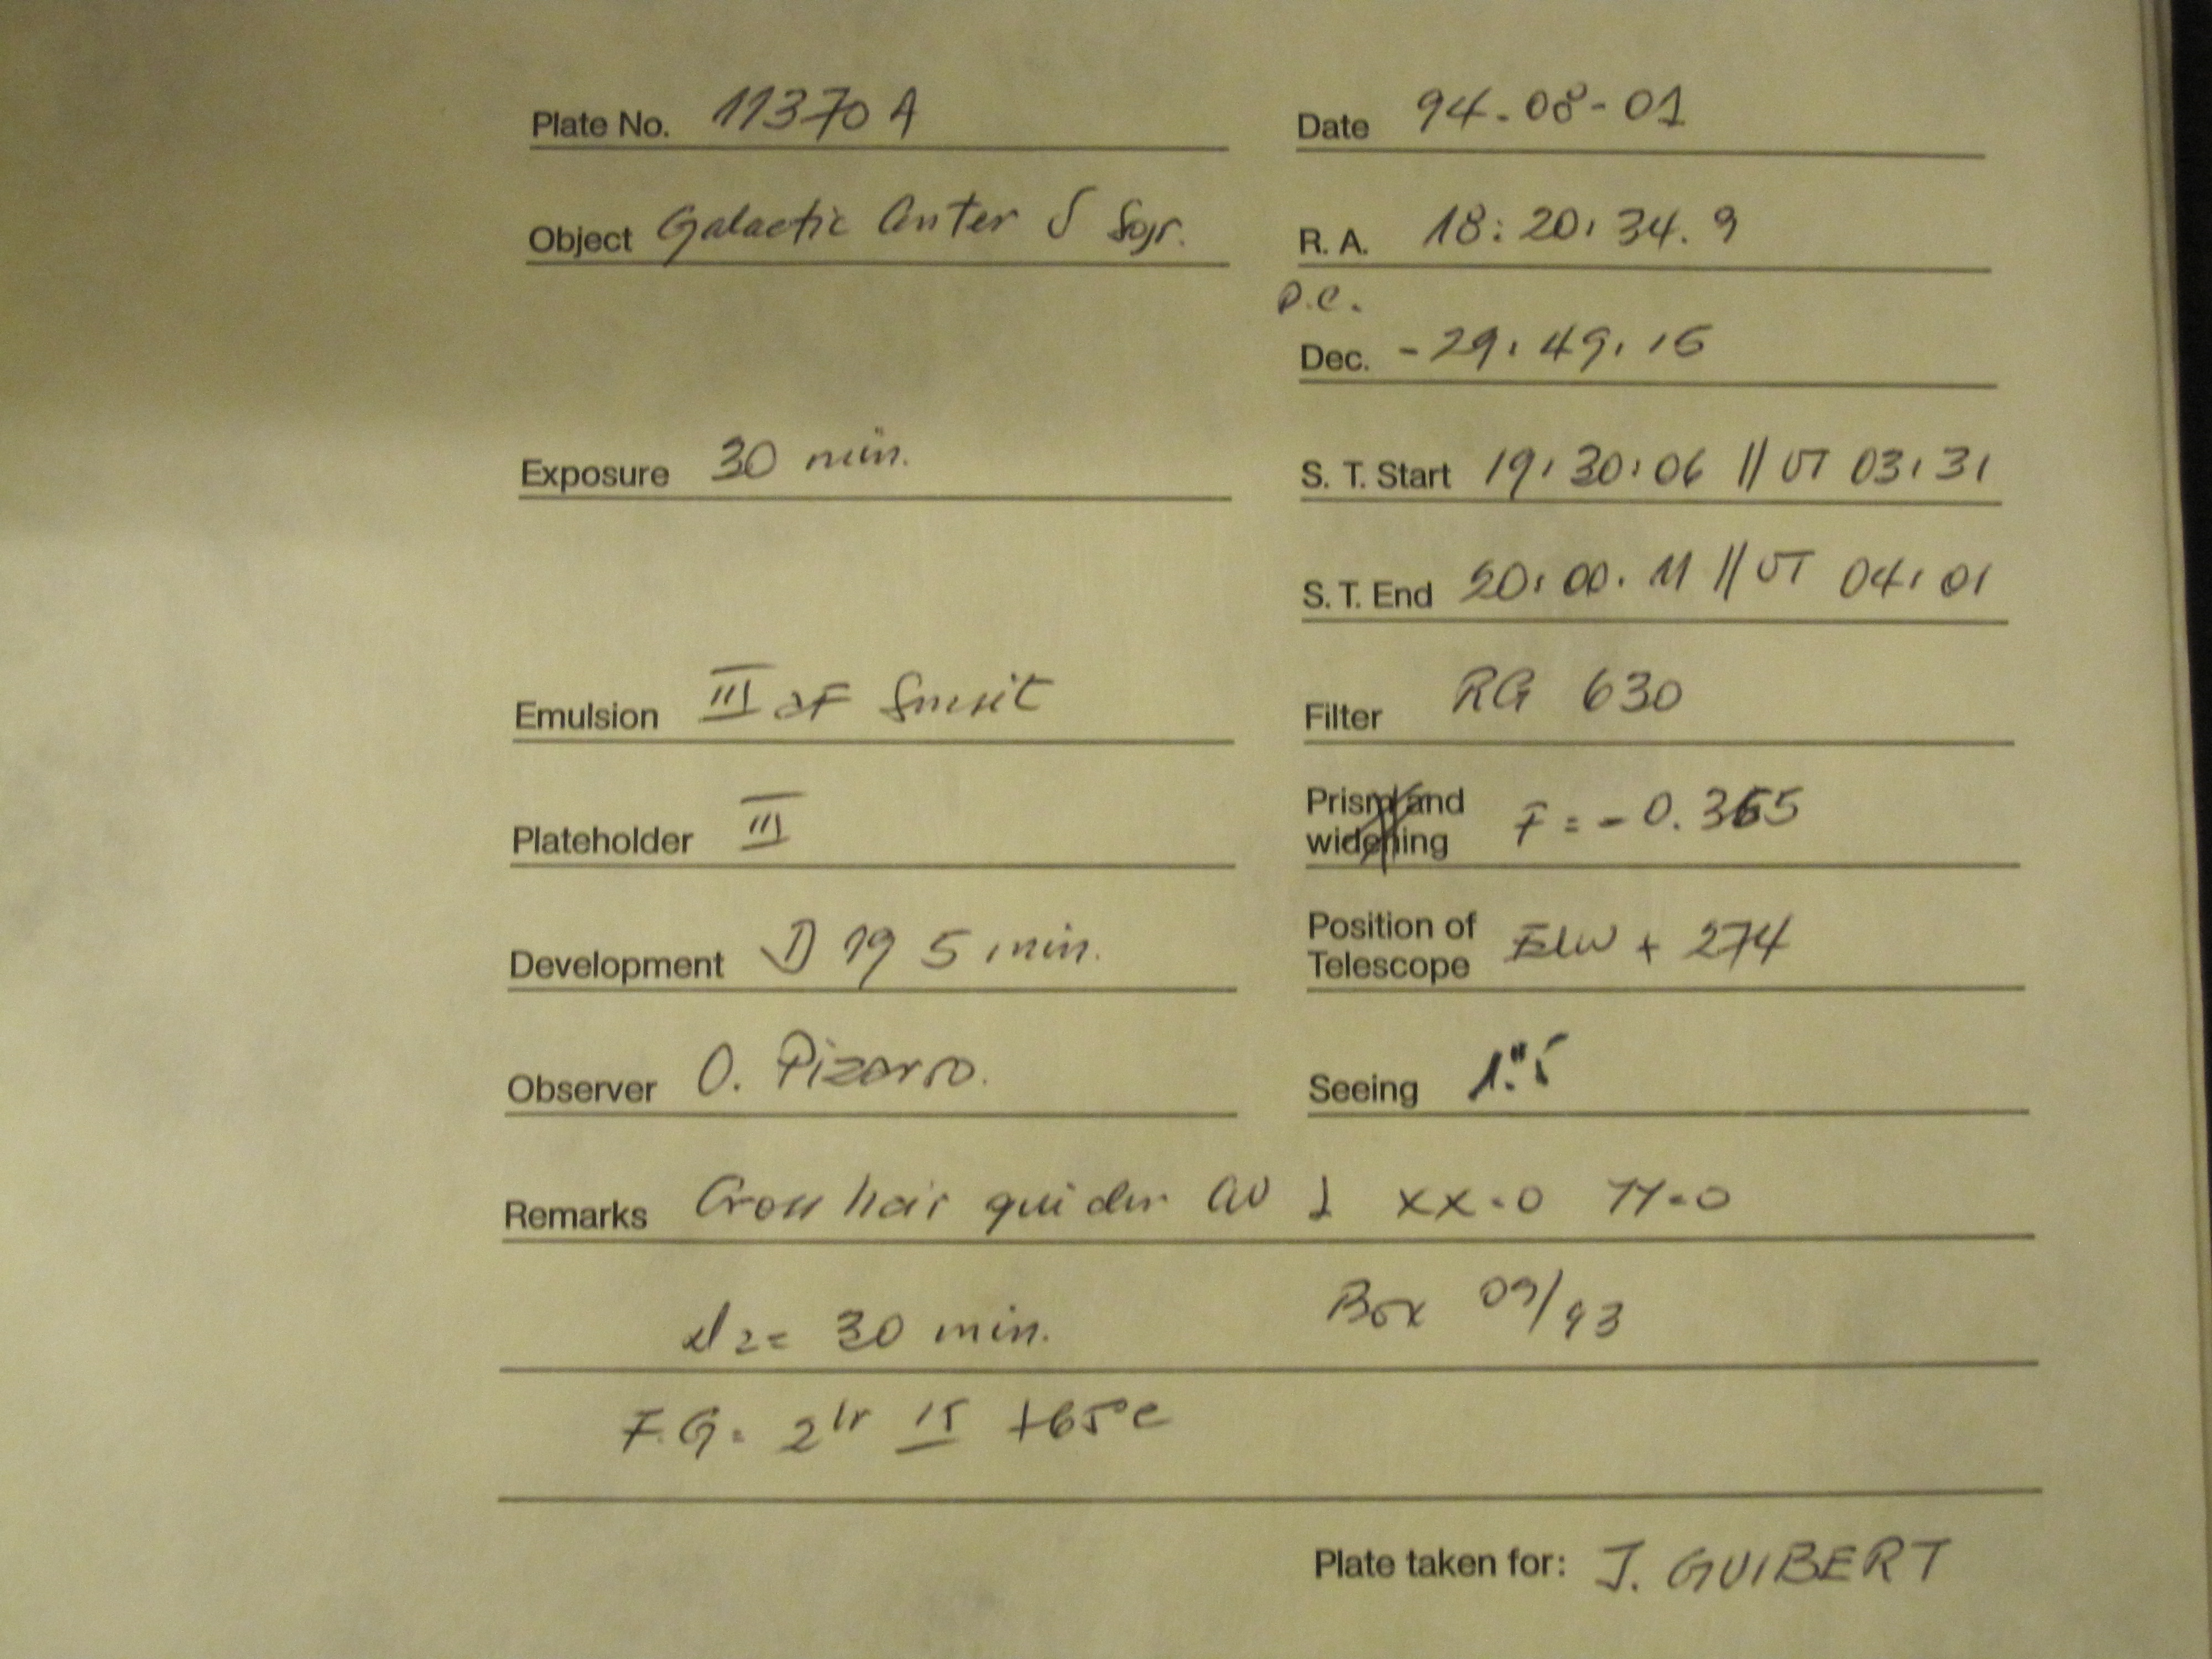 Plate No. 11370 A
Date 94-08-01
Object Galactic Center δ Sgr.
R. A. 18:20:34.9
P.C.
Dec. -29:49:16
Exposure 30 min.
S. T. Start 19:30:06 || UT 03:31
S. T. End 20:00:11 || UT 04:01
Emulsion III aF
Filter RG 630
Plateholder III
Prism and widening F = -0.365
Development D 19 5 min.
Position of Telescope + 274
Observer O. Pizarro.
Seeing 1."5
Remarks Cross hair guider XX=0 YY=0
= 30 min. Box 09/93
F.G. = 2hr +65°C
Plate taken for: J. GUIBERT